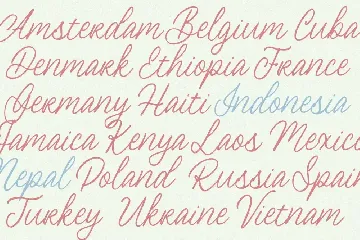 Amsterdam Belgium Cuba
Denmark Ethiopia France
Germany Haiti Indonesia
Jamaica Kenya Laos Mexico
Nepal Poland Russia Spain
Turkey Ukraine Vietnam